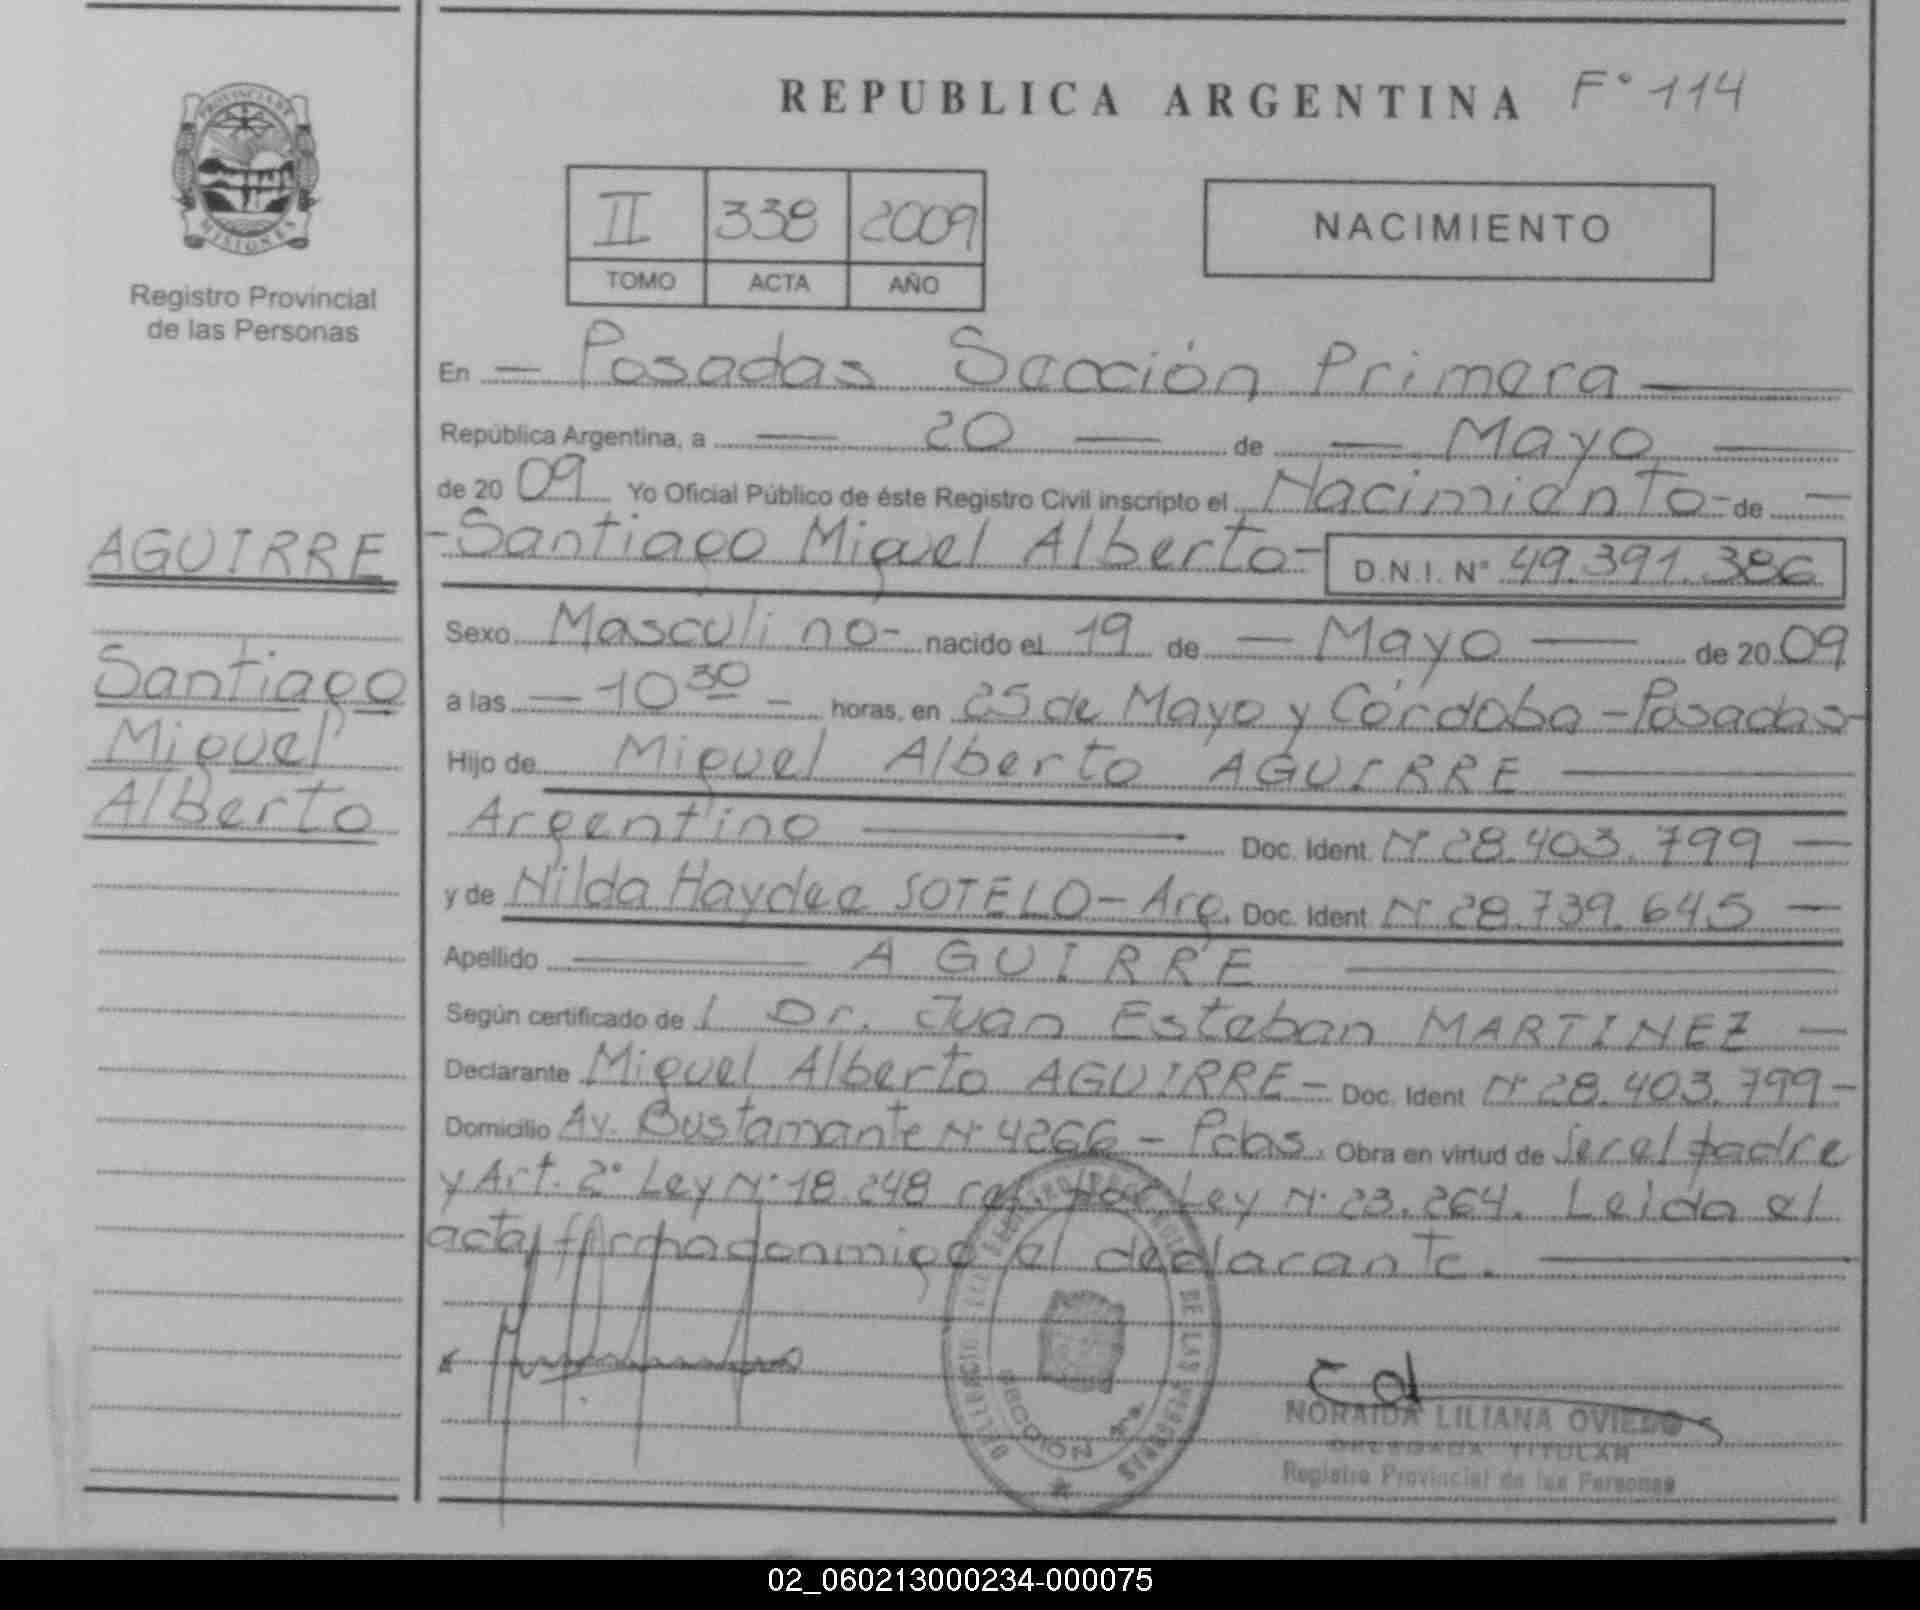 REPUBLICA ARGENTINA Fº 114
PROVINCIA DE
MISIONES
Registro Provincial
de las Personas
II 338 2009
TOMO ACTA AÑO
NACIMIENTO
En — Posadas Sección Primera —
República Argentina, a — 20 — de — Mayo —
de 20 09 Yo Oficial Público de éste Registro Civil inscripto el Nacimiento - de —
AGUIRRE
Santiago
Miguel
Alberto
- Santiago Miguel Alberto - D.N.I. Nº 49.391.386
Sexo Masculino - nacido el 19 de — Mayo — de 20 09
a las — 10 30 — horas, en 25 de Mayo y Córdoba - Posadas -
Hijo de Miguel Alberto AGUIRRE —
Argentino — Doc. Ident. Nº 28.403.799 —
y de Nilda Haydee SOTELO - Arg. Doc. Ident. Nº 28.739.645 —
Apellido — AGUIRRE —
Según certificado de l Dr. Juan Esteban MARTINEZ —
Declarante Miguel Alberto AGUIRRE - Doc. Ident Nº 28.403.799 -
Domicilio Av. Bustamante Nº 4266 - Pdas. Obra en virtud de ser el padre
y Art. 2º Ley Nº 18.248 ref. por Ley Nº 23.264. Leida el
acta, firma conmigo el declarante. —
DE LAS PERSONAS
SECCION 1ra.
NORAIDA LILIANA OVIEDO
DELEGADA TITULAR
Registro Provincial de las Personas
02_060213000234-000075